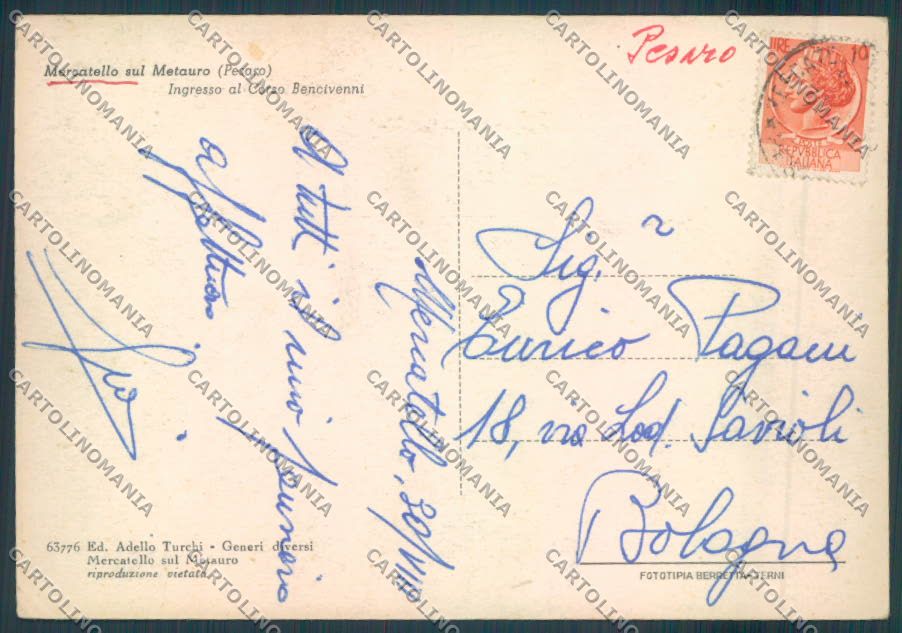 Mercatello sul Metauro (Pesaro)
Ingresso al Corso Bencivenni
Pesaro
LIRE 10
REPVBBLICA
ITALIANA
Mercatello, 20/
A tutti il mio pensiero
affettuoso
Sig.
Enrico Pagani
18, via Lod. Savioli
Bologna
63776 Ed. Adello Turchi - Generi diversi
Mercatello sul Metauro
riproduzione vietata
FOTOTIPIA BERRETTA - TERNI
CARTOLINOMANIA